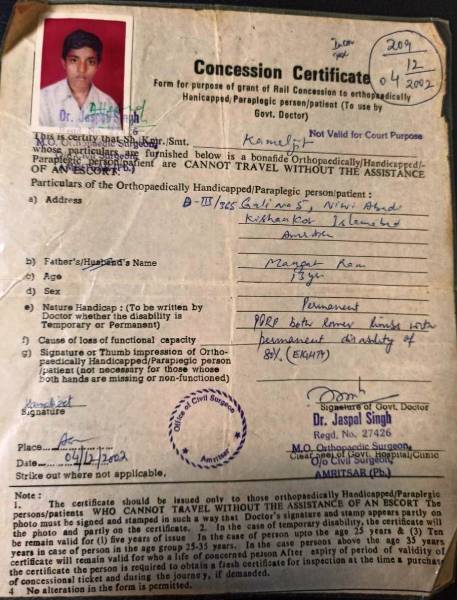 209
12
04 2002
Concession Certificate
Form for purpose of grant of Rail Concession to orthopaedically
Hanicapped, Paraplegic person/patient (To use by
Govt. Doctor)
Dr. Jaspal Singh
Not Valid for Court Purpose
This is certify that Sh./Kmr./Smt. Kamaljit
M.O. Orthopaedic Surgeon
whose particulars are furnished below is a bonafide Orthopaedically/Handicapped/-
Paraplegic person/patient are CANNOT TRAVEL WITHOUT THE ASSISTANCE
OF AN ESCORT.
Particulars of the Orthopaedically Handicapped/Paraplegic person/patient :
a) Address D-III/365 Gali No 5, Abad
Islamabad
Amritsar
b) Father's/Husband's Name Mangat Ram
c) Age 13 yr
d) Sex
e) Nature Handicap : (To be written by Permanent
Doctor whether the disability is
Temporary or Permanent) PPRP both lower limbs with
f) Cause of loss of functional capacity permanent disability of
g) Signature or Thumb impression of Ortho- 80% (EIGHTY)
paedically Handicapped/Paraplegic person
/patient (not necessary for those whose
both hands are missing or non-functioned)
Signature
Signature of Govt. Doctor
Dr. Jaspal Singh
Regd. No. 27426
Office of Civil Surgeon
Amritsar
M.O. Orthopaedic Surgeon
Clear Seal of Govt. Hospital/Clinic
O/o Civil Surgeon
AMRITSAR (Pb.)
Place
Date 04/12/2002
Strike out where not applicable,
Note :
1. The certificate should be issued only to those orthopaedically Handicapped/Paraplegic
persons/patients WHO CANNOT TRAVEL WITHOUT THE ASSISTANCE OF AN ESCORT The
photo must be signed and stamped in such a way that Doctor's signature and stamp appears partly on
the photo and partly on the certificate. 2. In the case of temporary disability, the certificate will
be remain valid for (i) five years of issue In the case of person upto the age 25 years & (3) Ten
years in case of person in the age group 25-35 years. In the case persons above the age 35 years
certificate will remain valid for who a life of concerned person After expiry of period of validity of
certificate the person is required to obtain a fresh certificate for inspection at the time a purchase
of concessional ticket and during the journey, if demanded.
4 No alteration in the form is permitted.